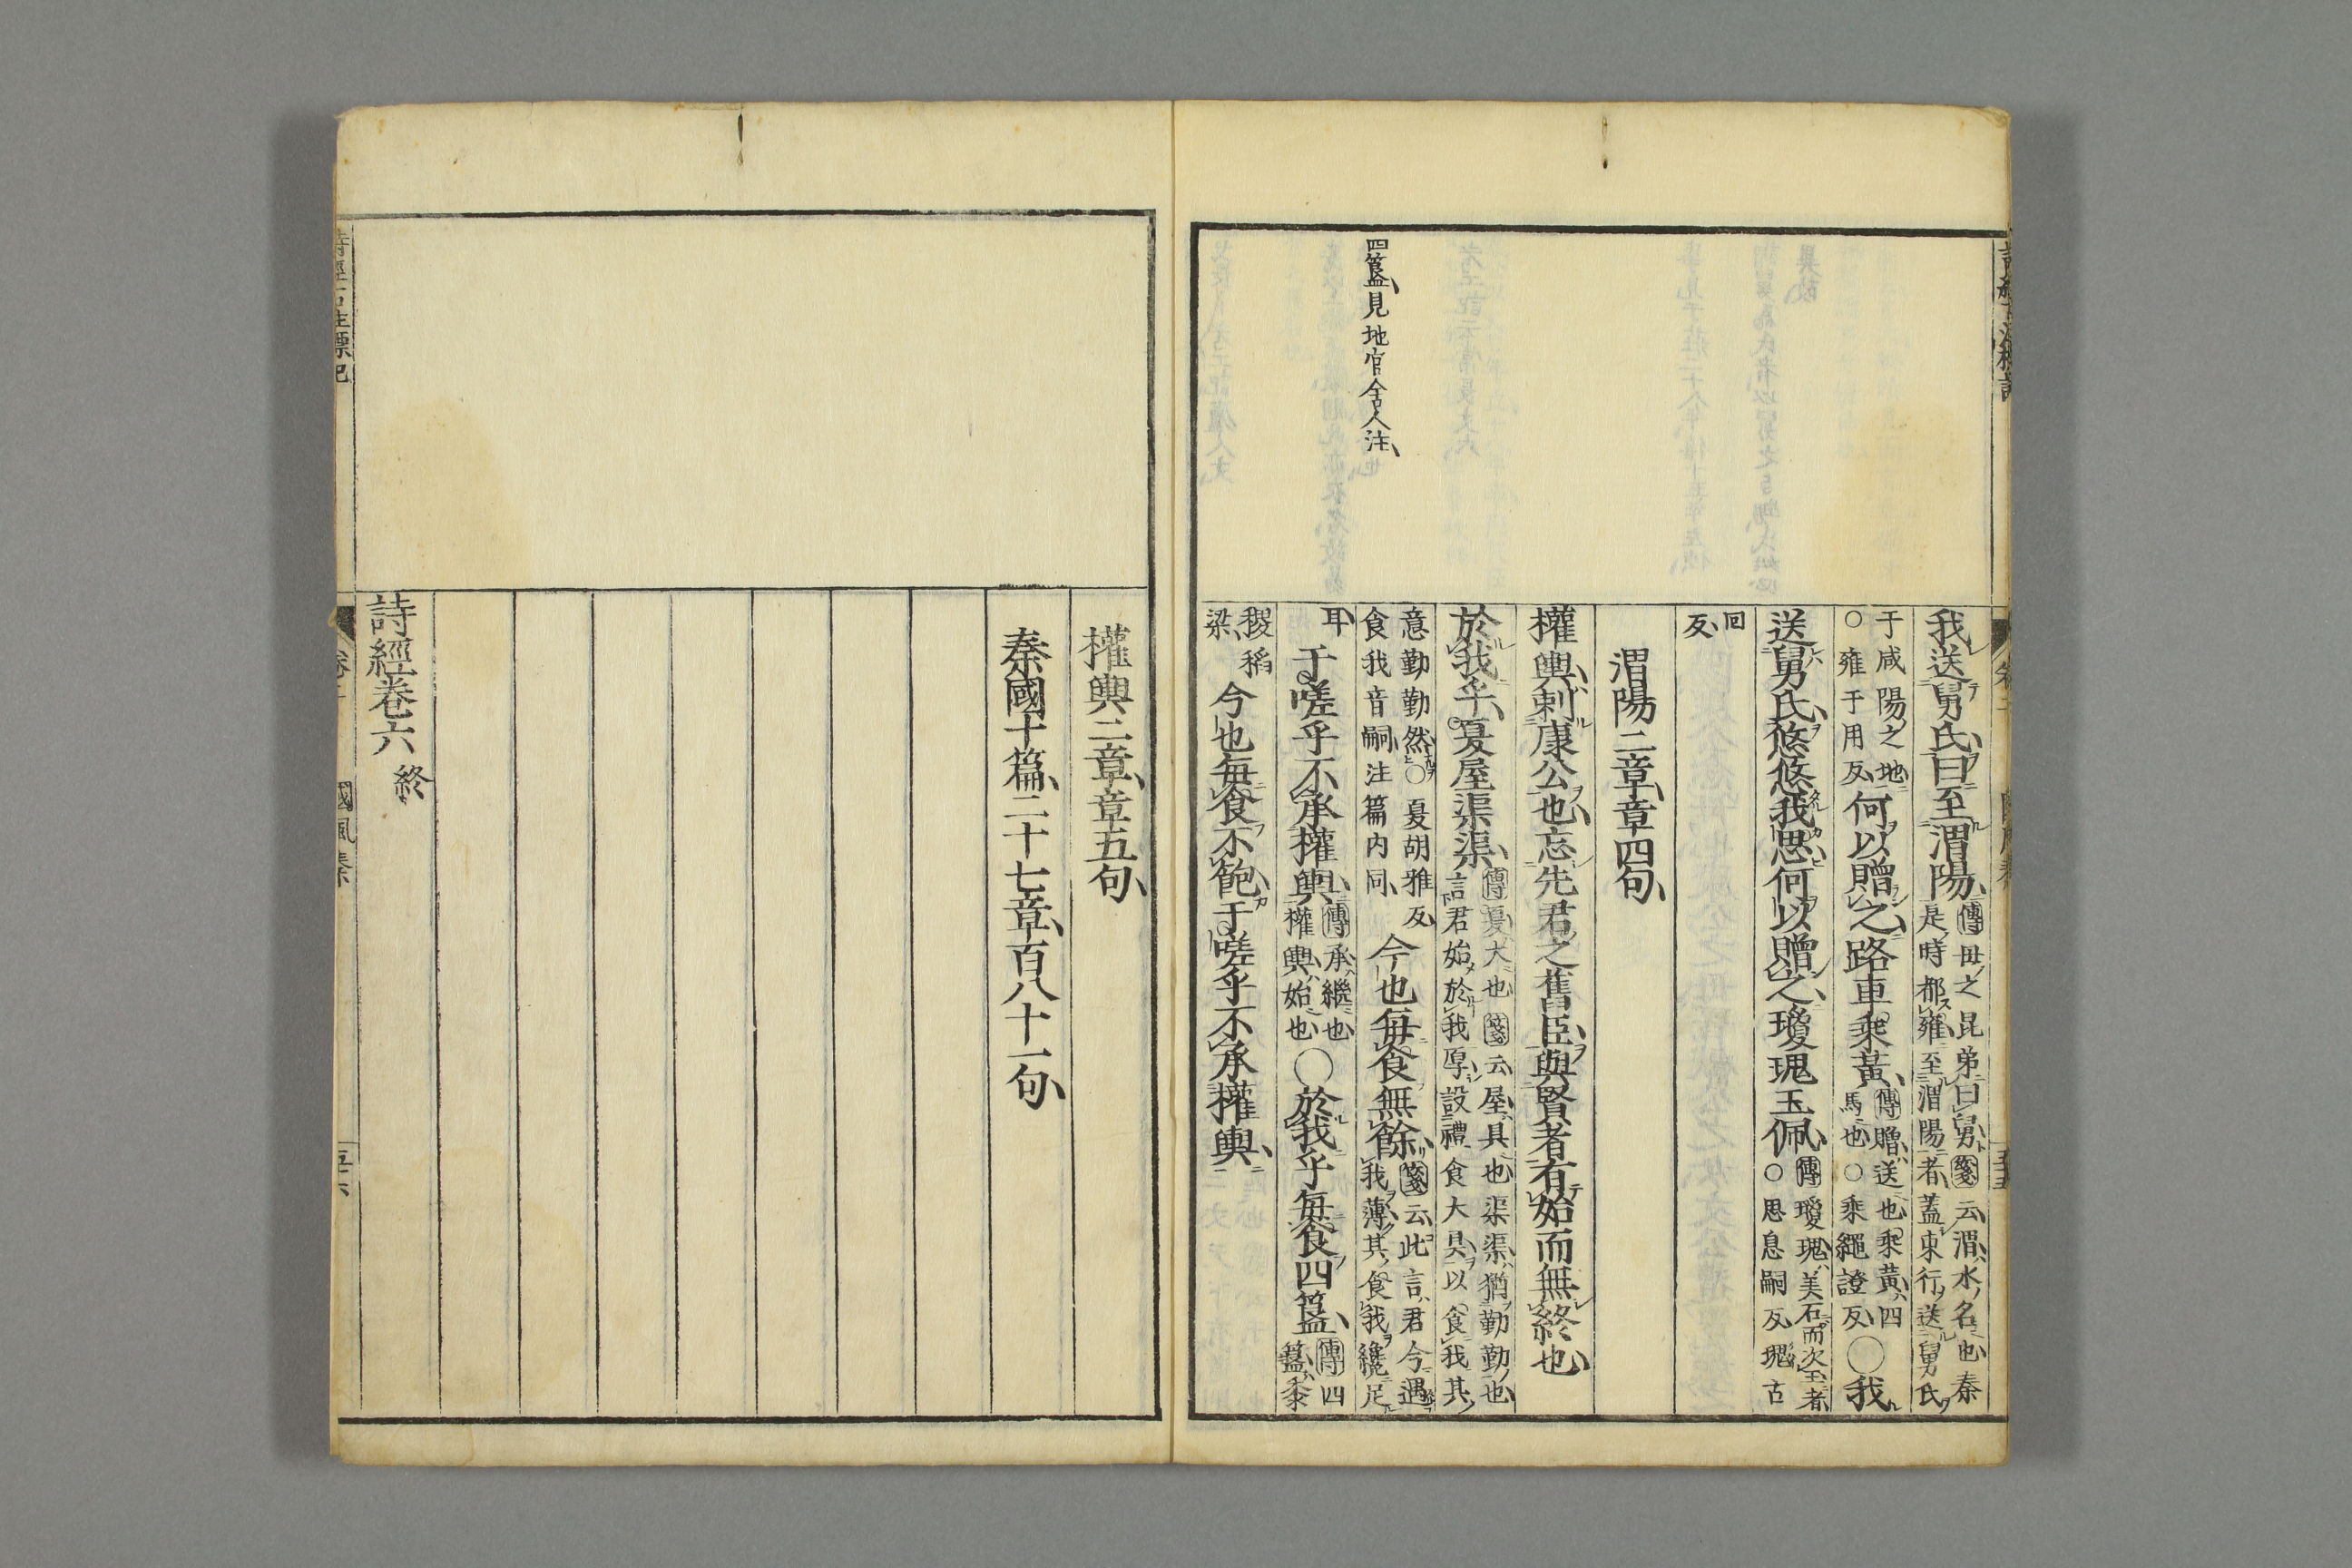 四簋見地官舍人注
我送舅氏曰至渭陽傳母之昆弟曰舅箋云渭水名也秦
是時都雍至渭陽者蓋東行送舅氏
于咸陽之地
○雍于用反何以贈之路車乘黃傳贈送也乘黃四
馬也○乘繩證反○我
送舅氏悠悠我思何以贈之瓊瑰玉佩傳瓊瑰美石而次玉者
○思息嗣反瑰古
回
反
渭陽二章章四句
權輿刺康公也忘先君之舊臣與賢者有始而無終也
於我乎夏屋渠渠傳夏大也箋云屋具也渠渠猶勤勤也
言君始於我厚設禮食大具以食我其
意勤勤然○夏胡雅反
食我音嗣注篇內同今也每食無餘箋云此言君今遇
我薄其食我纔足
耳
于嗟乎不承權輿傳承繼也
權輿始也○於我乎每食四簋傳四
簋黍
稷稻
梁今也每食不飽于嗟乎不承權輿
權輿二章章五句
秦國十篇二十七章百八十一句
詩經卷六終
國風秦
五十六